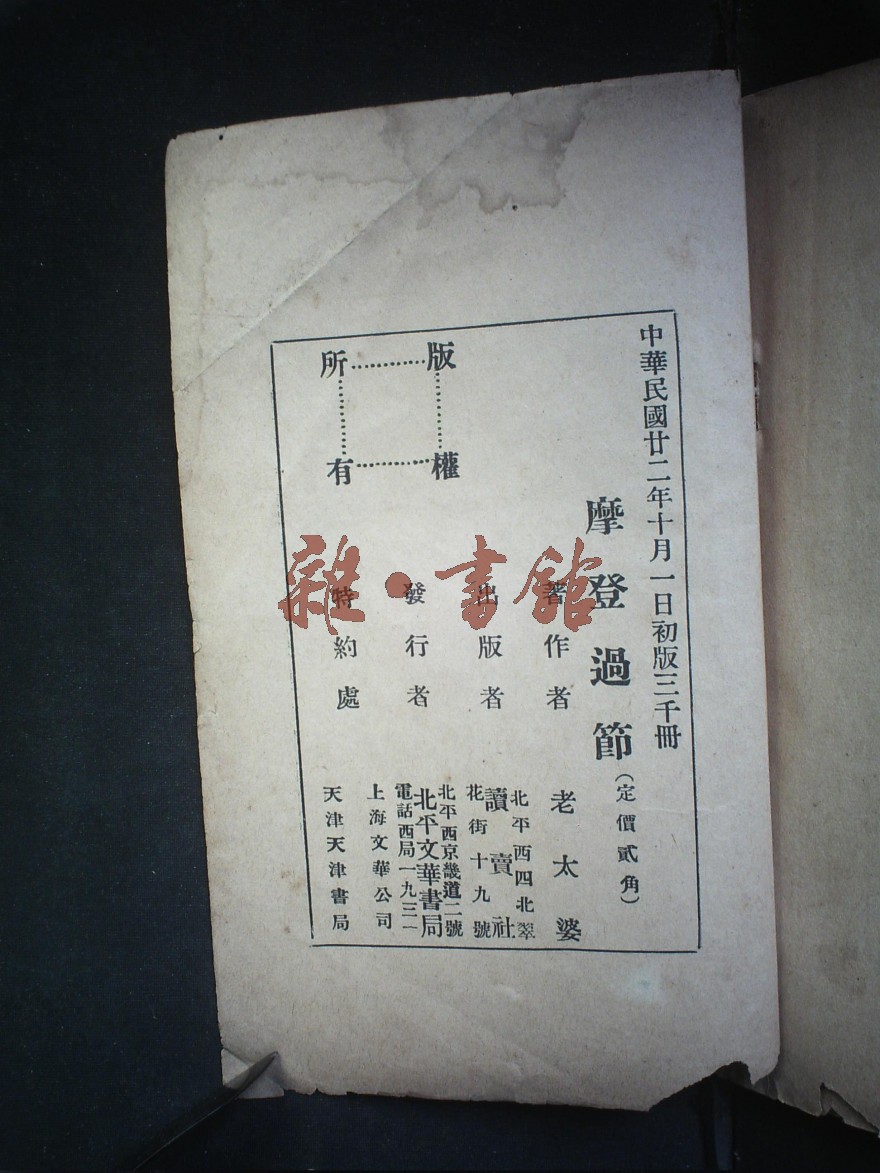 中華民國廿二年十月一日初版三千冊
摩登過節(定價貳角)
著作者 老太婆
出版者 北平西四北翠花街十九號 讀賣社
發行者 北平西京畿道二號 北平文華書局 電話西局一九三一
特約處 上海文華公司
天津天津書局
版權所有
雜·書館